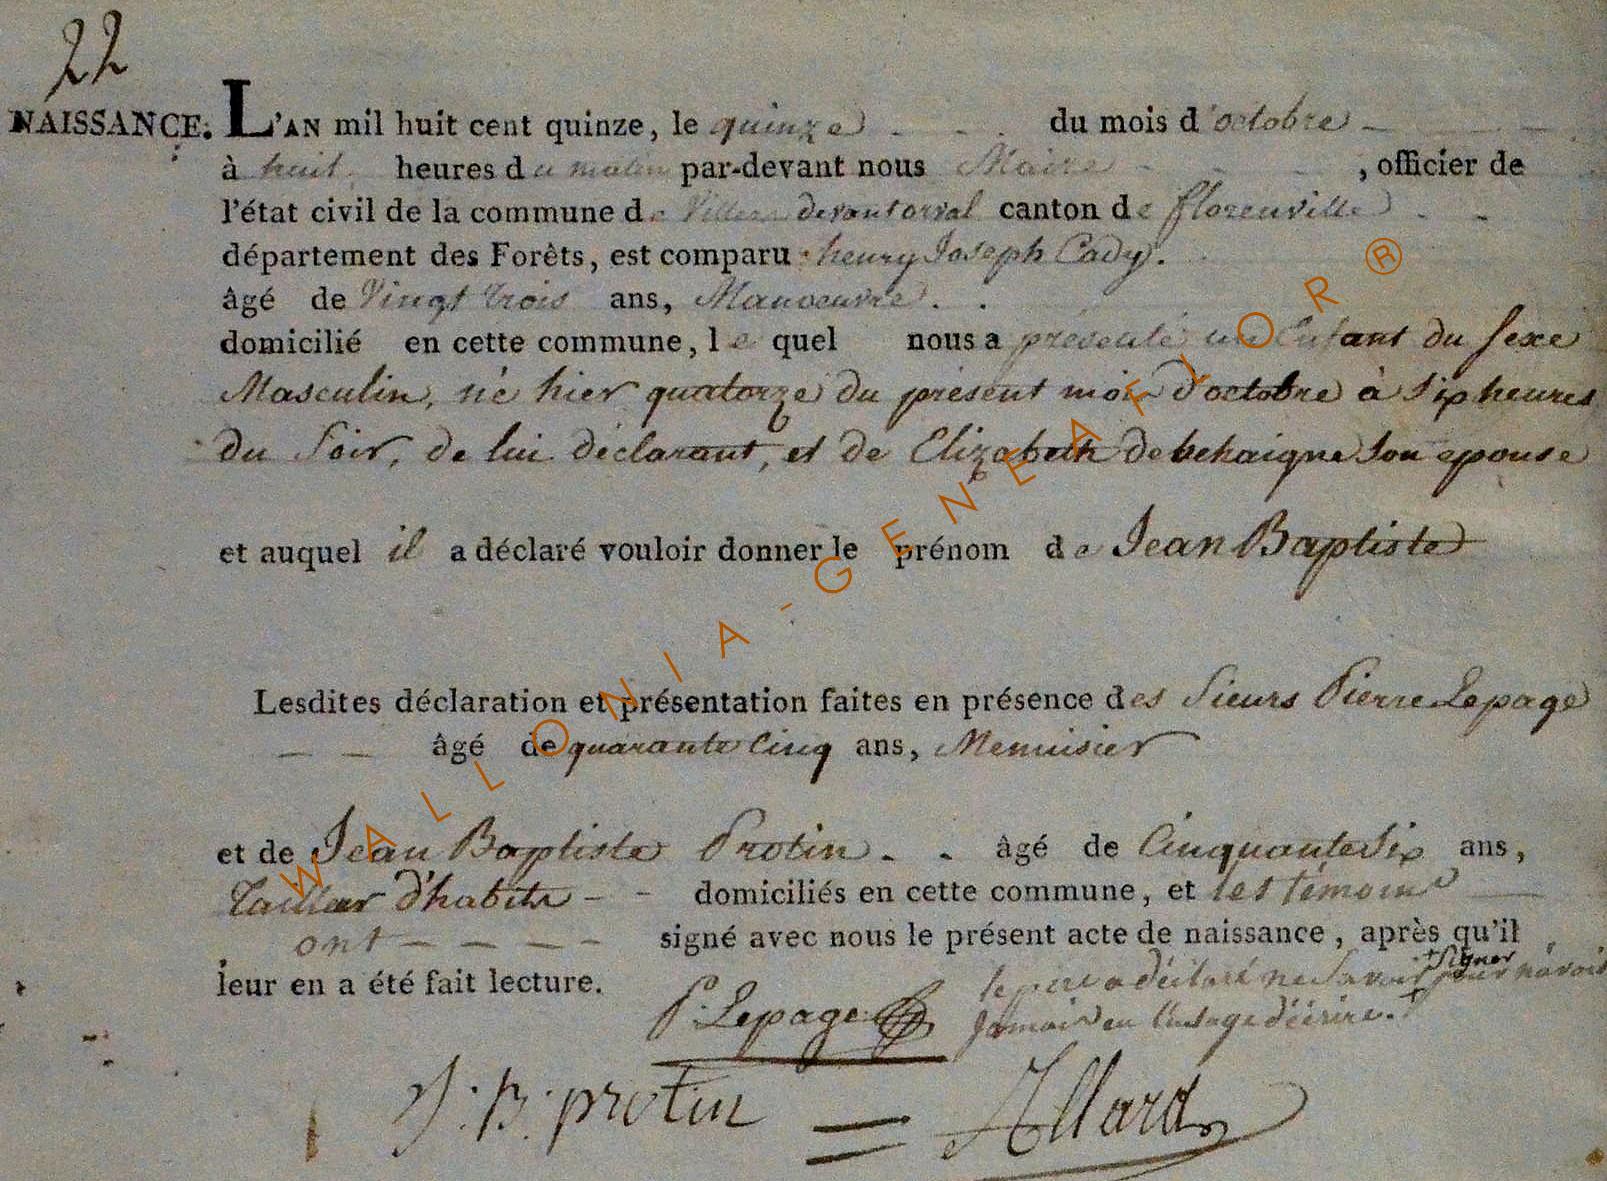 22
NAISSANCE. L'AN mil huit cent quinze, le quinze du mois d'octobre
à huit heures du matin par-devant nous Maire , officier de
l'état civil de la commune de Villers devant orval canton de florenville
département des Forêts, est comparu henry Joseph Cady.
âgé de Vingt trois ans, Manoeuvre
domicilié en cette commune, le quel nous a présenté un Enfant du sexe
Masculin, né hier quatorze du présent mois d'octobre à Six heures
du Soir, de lui déclarant, et de Elizabeth debehaigne son epouse
et auquel il a déclaré vouloir donner le prénom de Jean Baptiste
Lesdites déclaration et présentation faites en présence des Sieurs Pierre Lepage
âgé de quarante Cinq ans, Menuisier
et de Jean Baptiste Protin âgé de Cinquante Six ans,
Tailleur d'habits domiciliés en cette commune, et les témoins
ont signé avec nous le présent acte de naissance, après qu'il
leur en a été fait lecture.
+ signer
le pere a déclaré ne Savoir + pour n'avoir
Jamais eu l'usage d'écrire.
P. Lepage
J. B. protin = Allard
WALLONIA-GENEAFLOR®